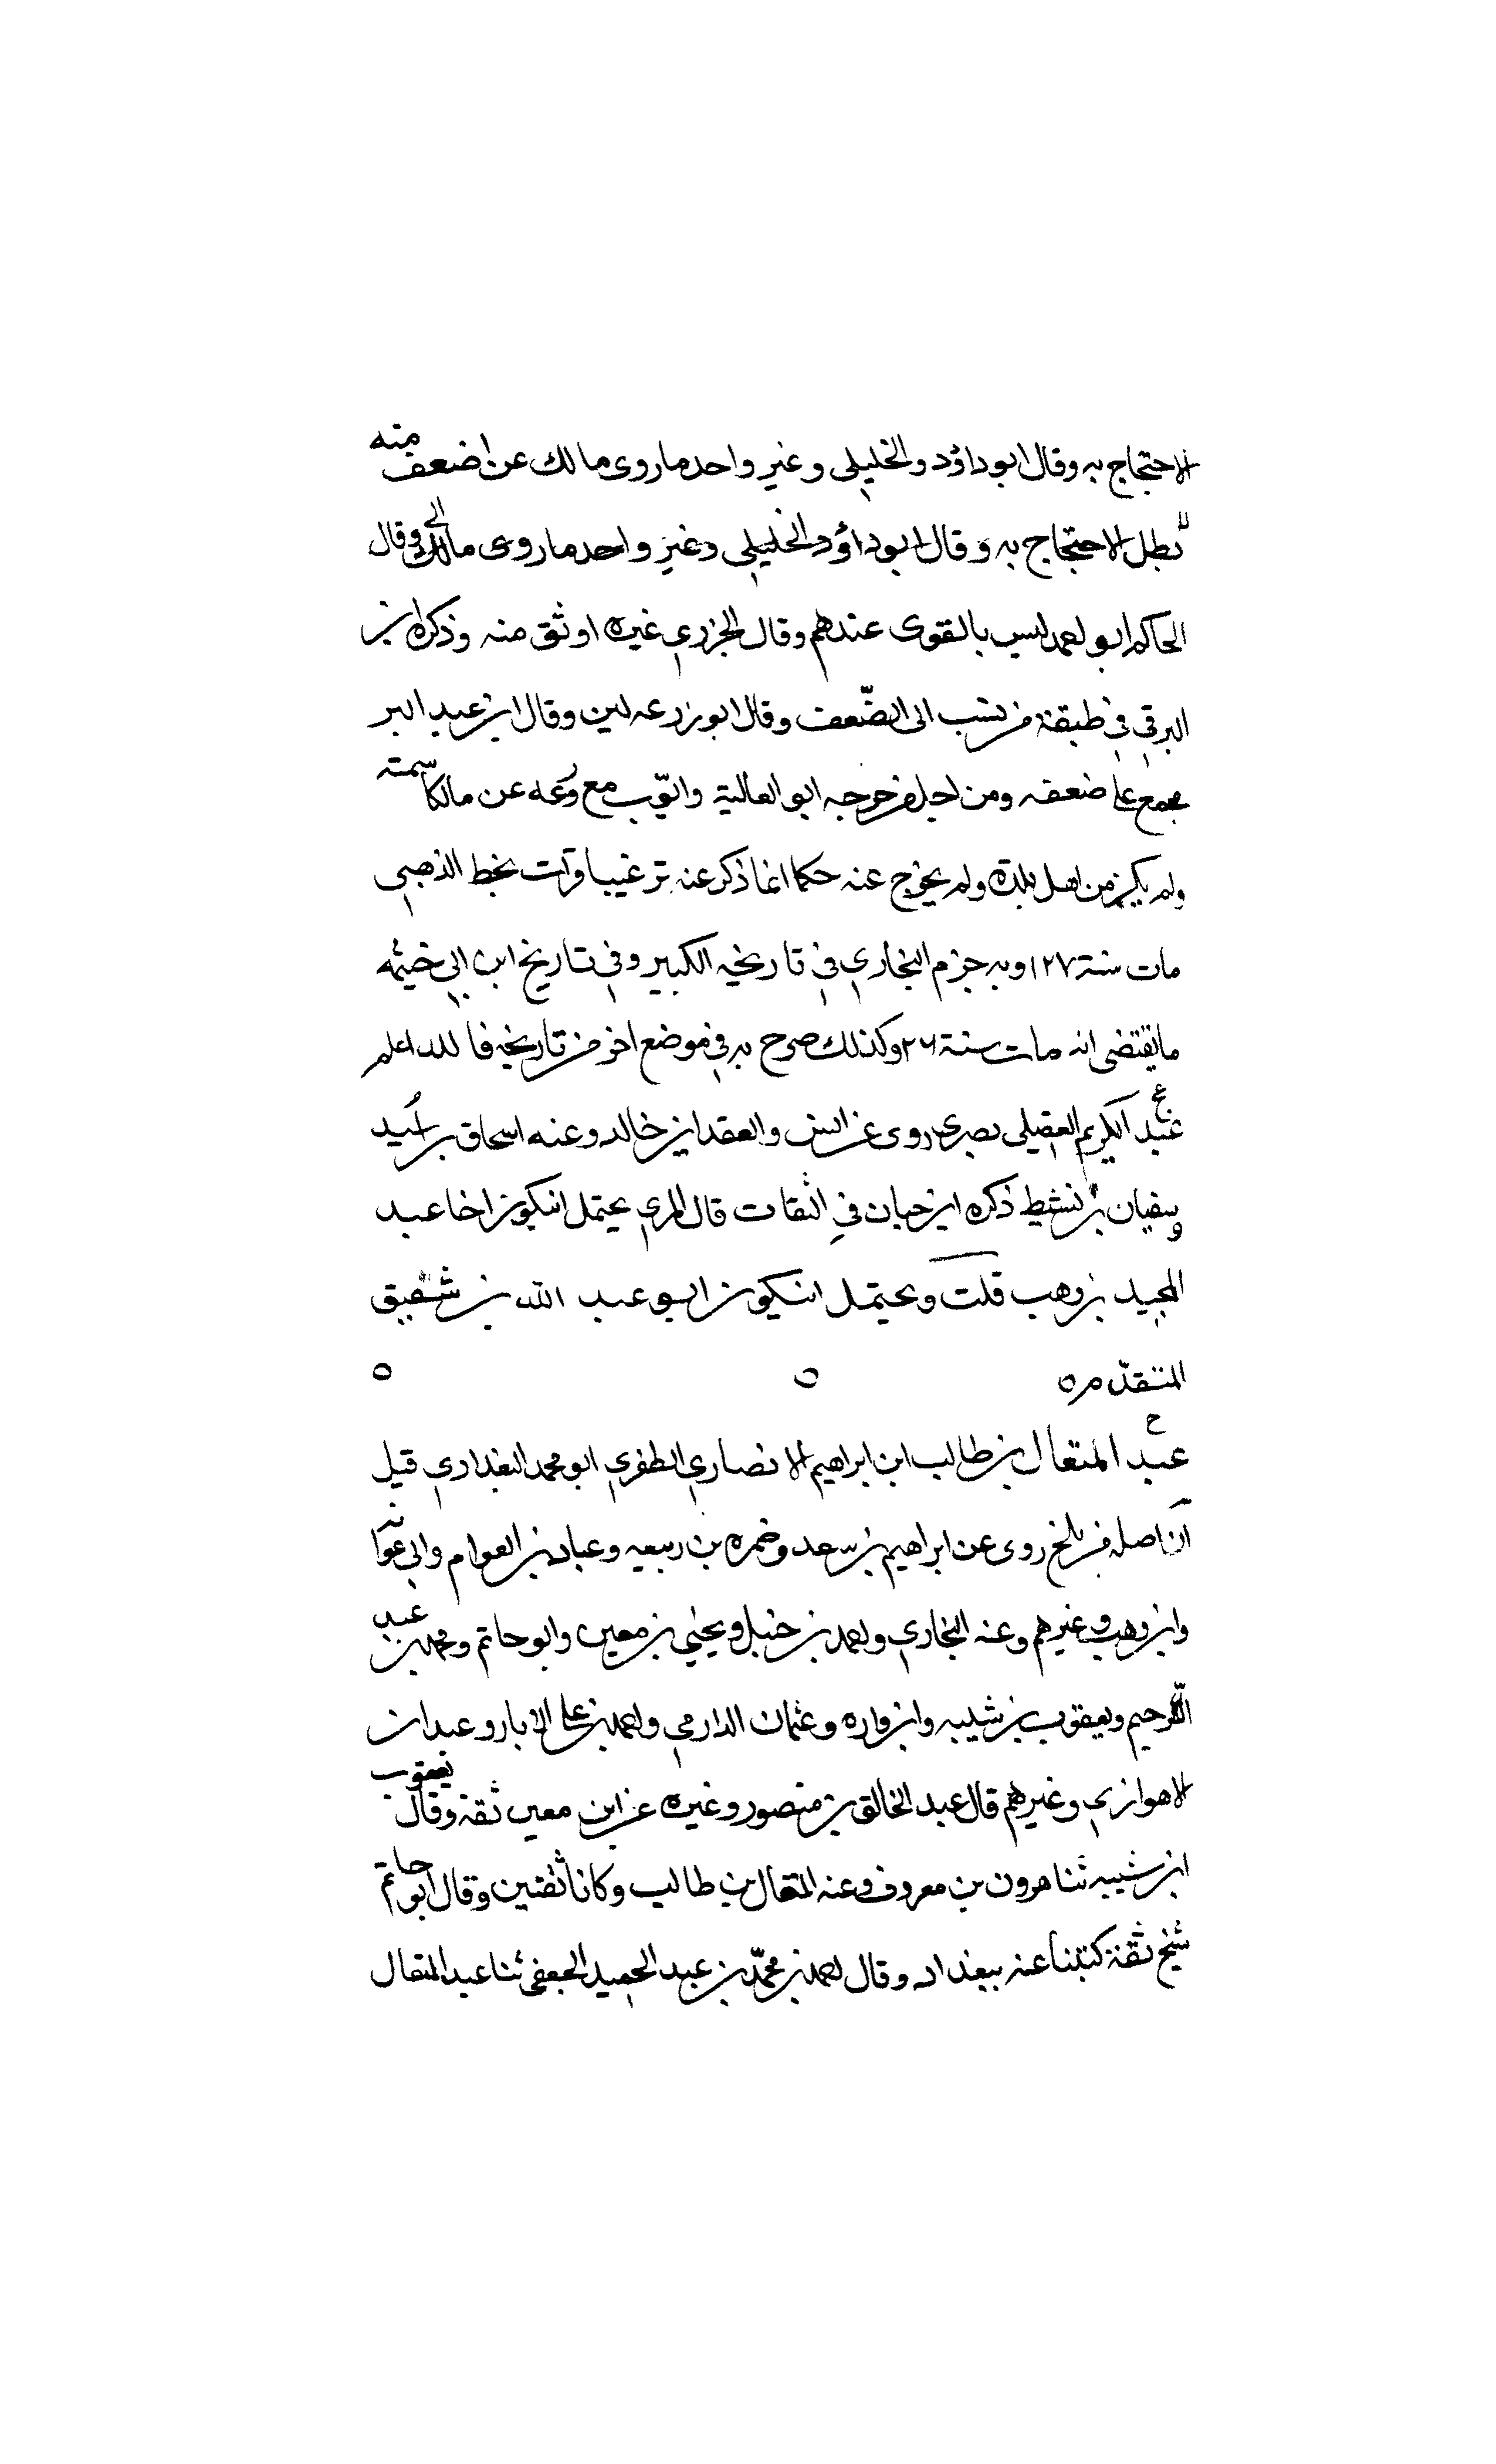 الاحتجاج به وقال ابو داؤد والخليلي وغير واحد ما روى مالك عن اضعف منه
تبطل الاحتجاج به وقال ابو داؤد الخليلي وغير واحد ما روى مالك وقال
الحاكم ابو احمد ليس بالقوى عندهم وقال الجزري غيره اوثق منه وذكره ابن
البرقي في طبقة من نسب الى الضّعف وقال ابو زرعه لين وقال ابن عبد البر
مجمع على ضعفه ومن اجل من جرحه ابو العالية وايّوب مع ورعه عن مالكا سمته
ولم يكن من اهل بلده ولم يخرج عنه حكما انما ذكر عنه ترغيبا قرات بخط الذهبي
مات سنة ١٢٧ وبه جزم البخاري في تاريخه الكبير وفي تاريخ ابن ابي خيثمه
ما يقتضى انه مات سنة ٢٦ وكذلك صرح به في موضع اخر من تاريخه فالله اعلم
ع
عبد الكريم العقيلي بصري روى عن انس والعقد ابن خالد وعنه اسحاق بن اسيد
وسفيان بن نشيط ذكره ابن حبان في الثقات قال المزي يحتمل ان يكون اخا عبد
المجيد بن وهب قلت ويحتمل ان يكون ابو عبد الله بن شقيق
المتقدّم ه ه ه
ح
عبد المتعال بن طالب ابن ابراهيم الانصاري الظفري ابو محمد البغدادي قيل
ان اصله من بلخ روى عن ابراهيم بن سعد وضمره بن ربيعه وعباد بن العوام وابي عوانه
وابن وهب وغيرهم وعنه البخاري واحمد بن حنبل ويحيى بن معين وابو حاتم ومحمد بن عبد
الرحيم ويعقوب بن شيبه وابن واره وعثمان الدارمي واحمد بن على الابار وعبدان
لاهوازي وغيرهم قال عبد الخالق بن منصور وغيره عن ابن معين ثقة وقال يعقوب
ابن شيبه ثنا هرون بن معروف وعنه المتعال بن طالب وكانا ثقتين وقال ابو حاتم
شيخ ثقة كتبنا عنه ببغداد وقال احمد بن محمّد بن عبد الحميد الجعفي ثنا عبد المتعال